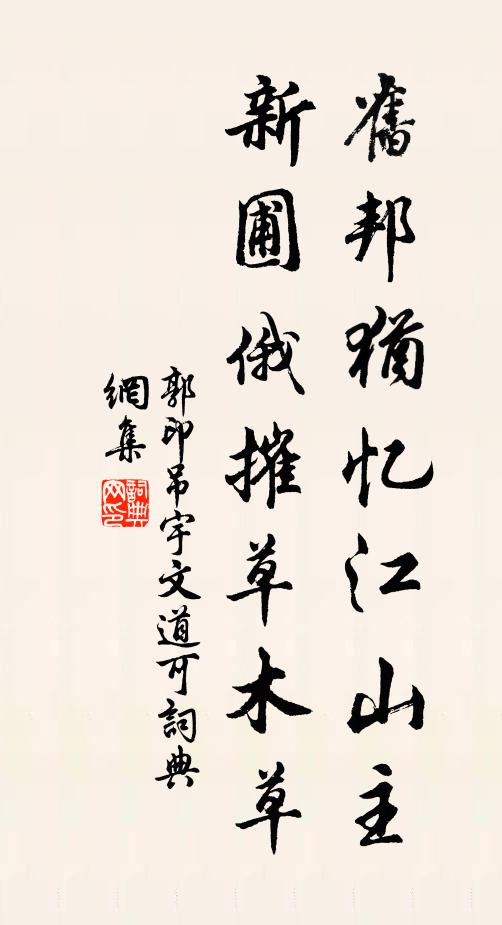 舊邦猶忆江山主
新圃俄摧草木草
郭印吊宇文道可詞典
網集
詞典
网印